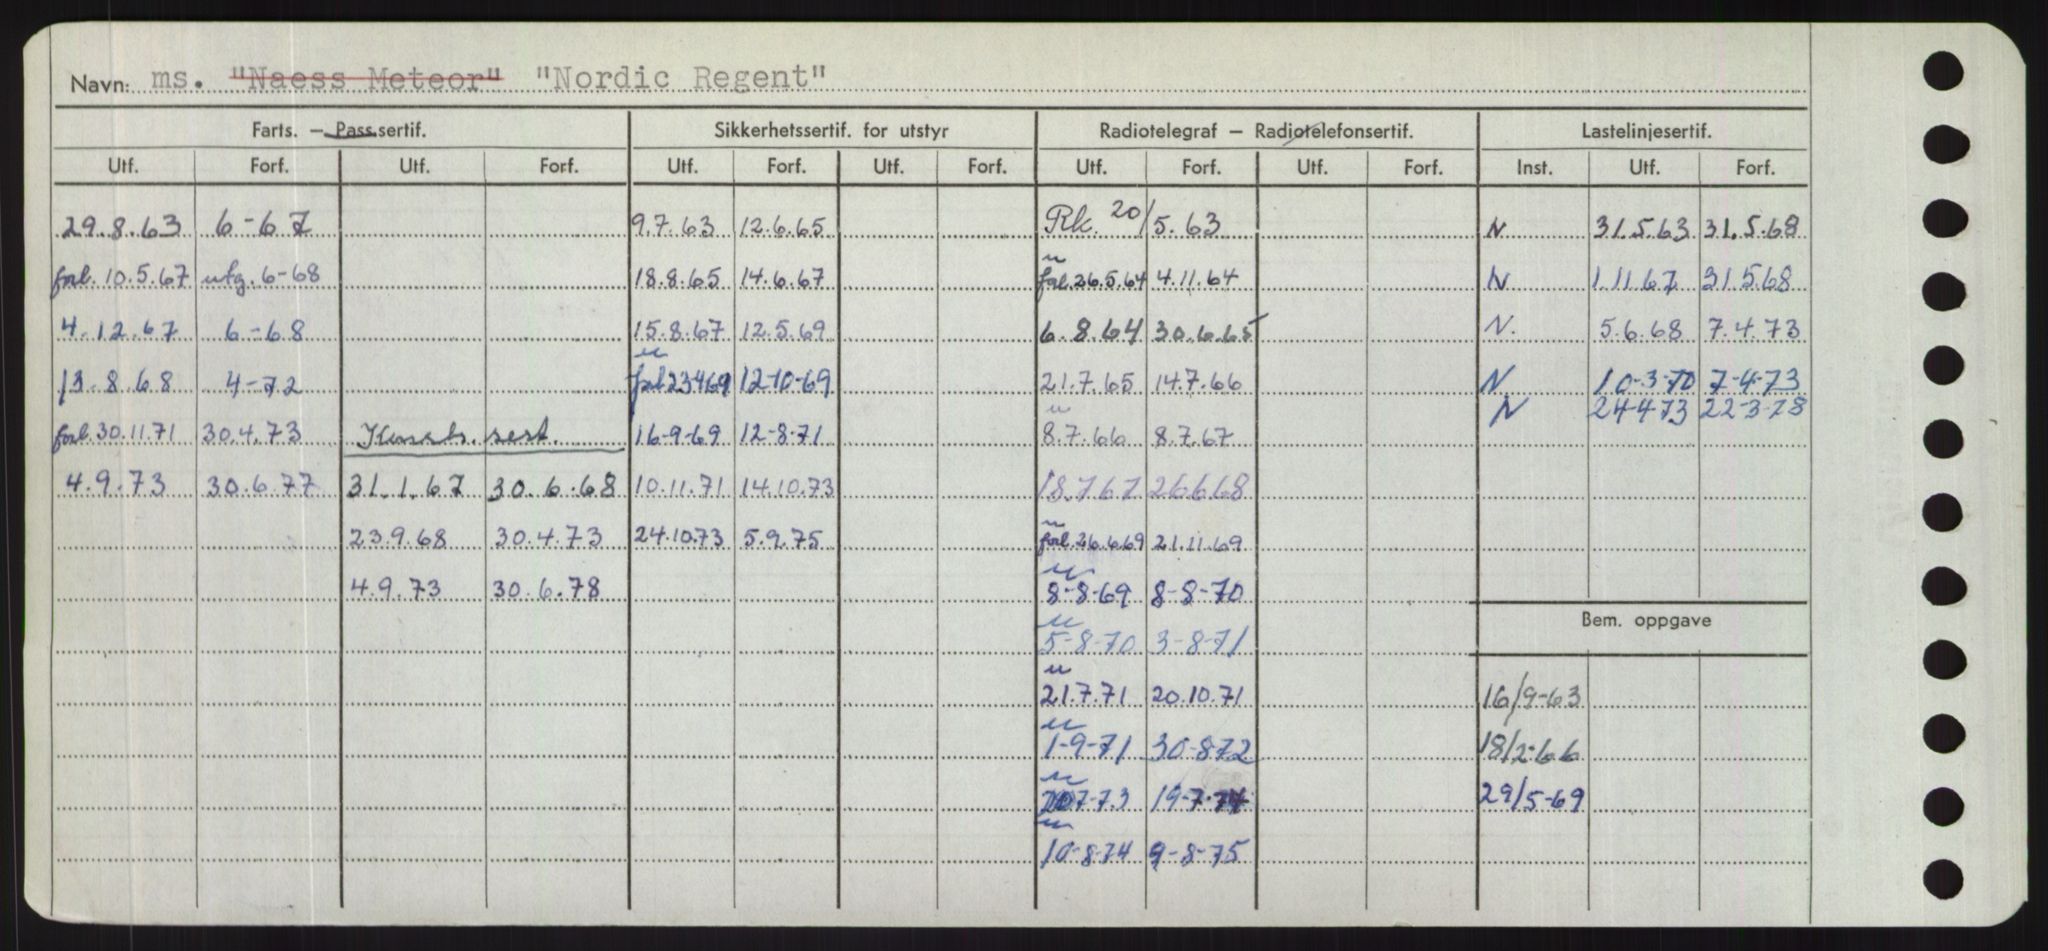 Navn: ms. "Naess Meteor" "Nordic Regent"
Farts. — Pass.sertif. Sikkerhetssertif. for utstyr Radiotelegraf — Radiotelefonsertif. Lastelinjesertif.
Utf. Forf. Utf. Forf. Utf. Forf. Utf. Forf. Utf. Forf. Utf. Forf. Inst. Utf. Forf.
29.8.63 6-67 9.7.63 12.6.65 Rk. 20/5.63 N 31.5.63 31.5.68
forl. 10.5.67 utg. 6-68 18.8.65 14.6.67 forl. 26.5.64 4.11.64 N 1.11.67 31.5.68
4.12.67 6-68 15.8.67 12.5.69 6.8.64 30.6.65 N. 5.6.68 7.4.73
13.8.68 4-72 forl. 23.4.69 12-10-69 21.7.65 14.7.66 N 10-3-70 7-4-73
N 24-4-73 22-3-78
forl. 30.11.71 30.4.73 sert. 16-9-69 12-8-71 8.7.66 8.7.67
4.9.73 30.6.77 31.1.67 30.6.68 10.11.71 14.10.73 18.7.67 26.6.68
23.9.68 30.4.73 24.10.73 5.9.75 forl. 26.6.69 21.11.69
4.9.73 30.6.78 8-8-69 8-8-70
Bem. oppgave
5-8-70 3-8-71
21.7.71 20.10.71 16/9-63
1-9-71 30-8-72 18/2-66
7-73 19-7-74 29/5-69
10-8-74 9-8-75